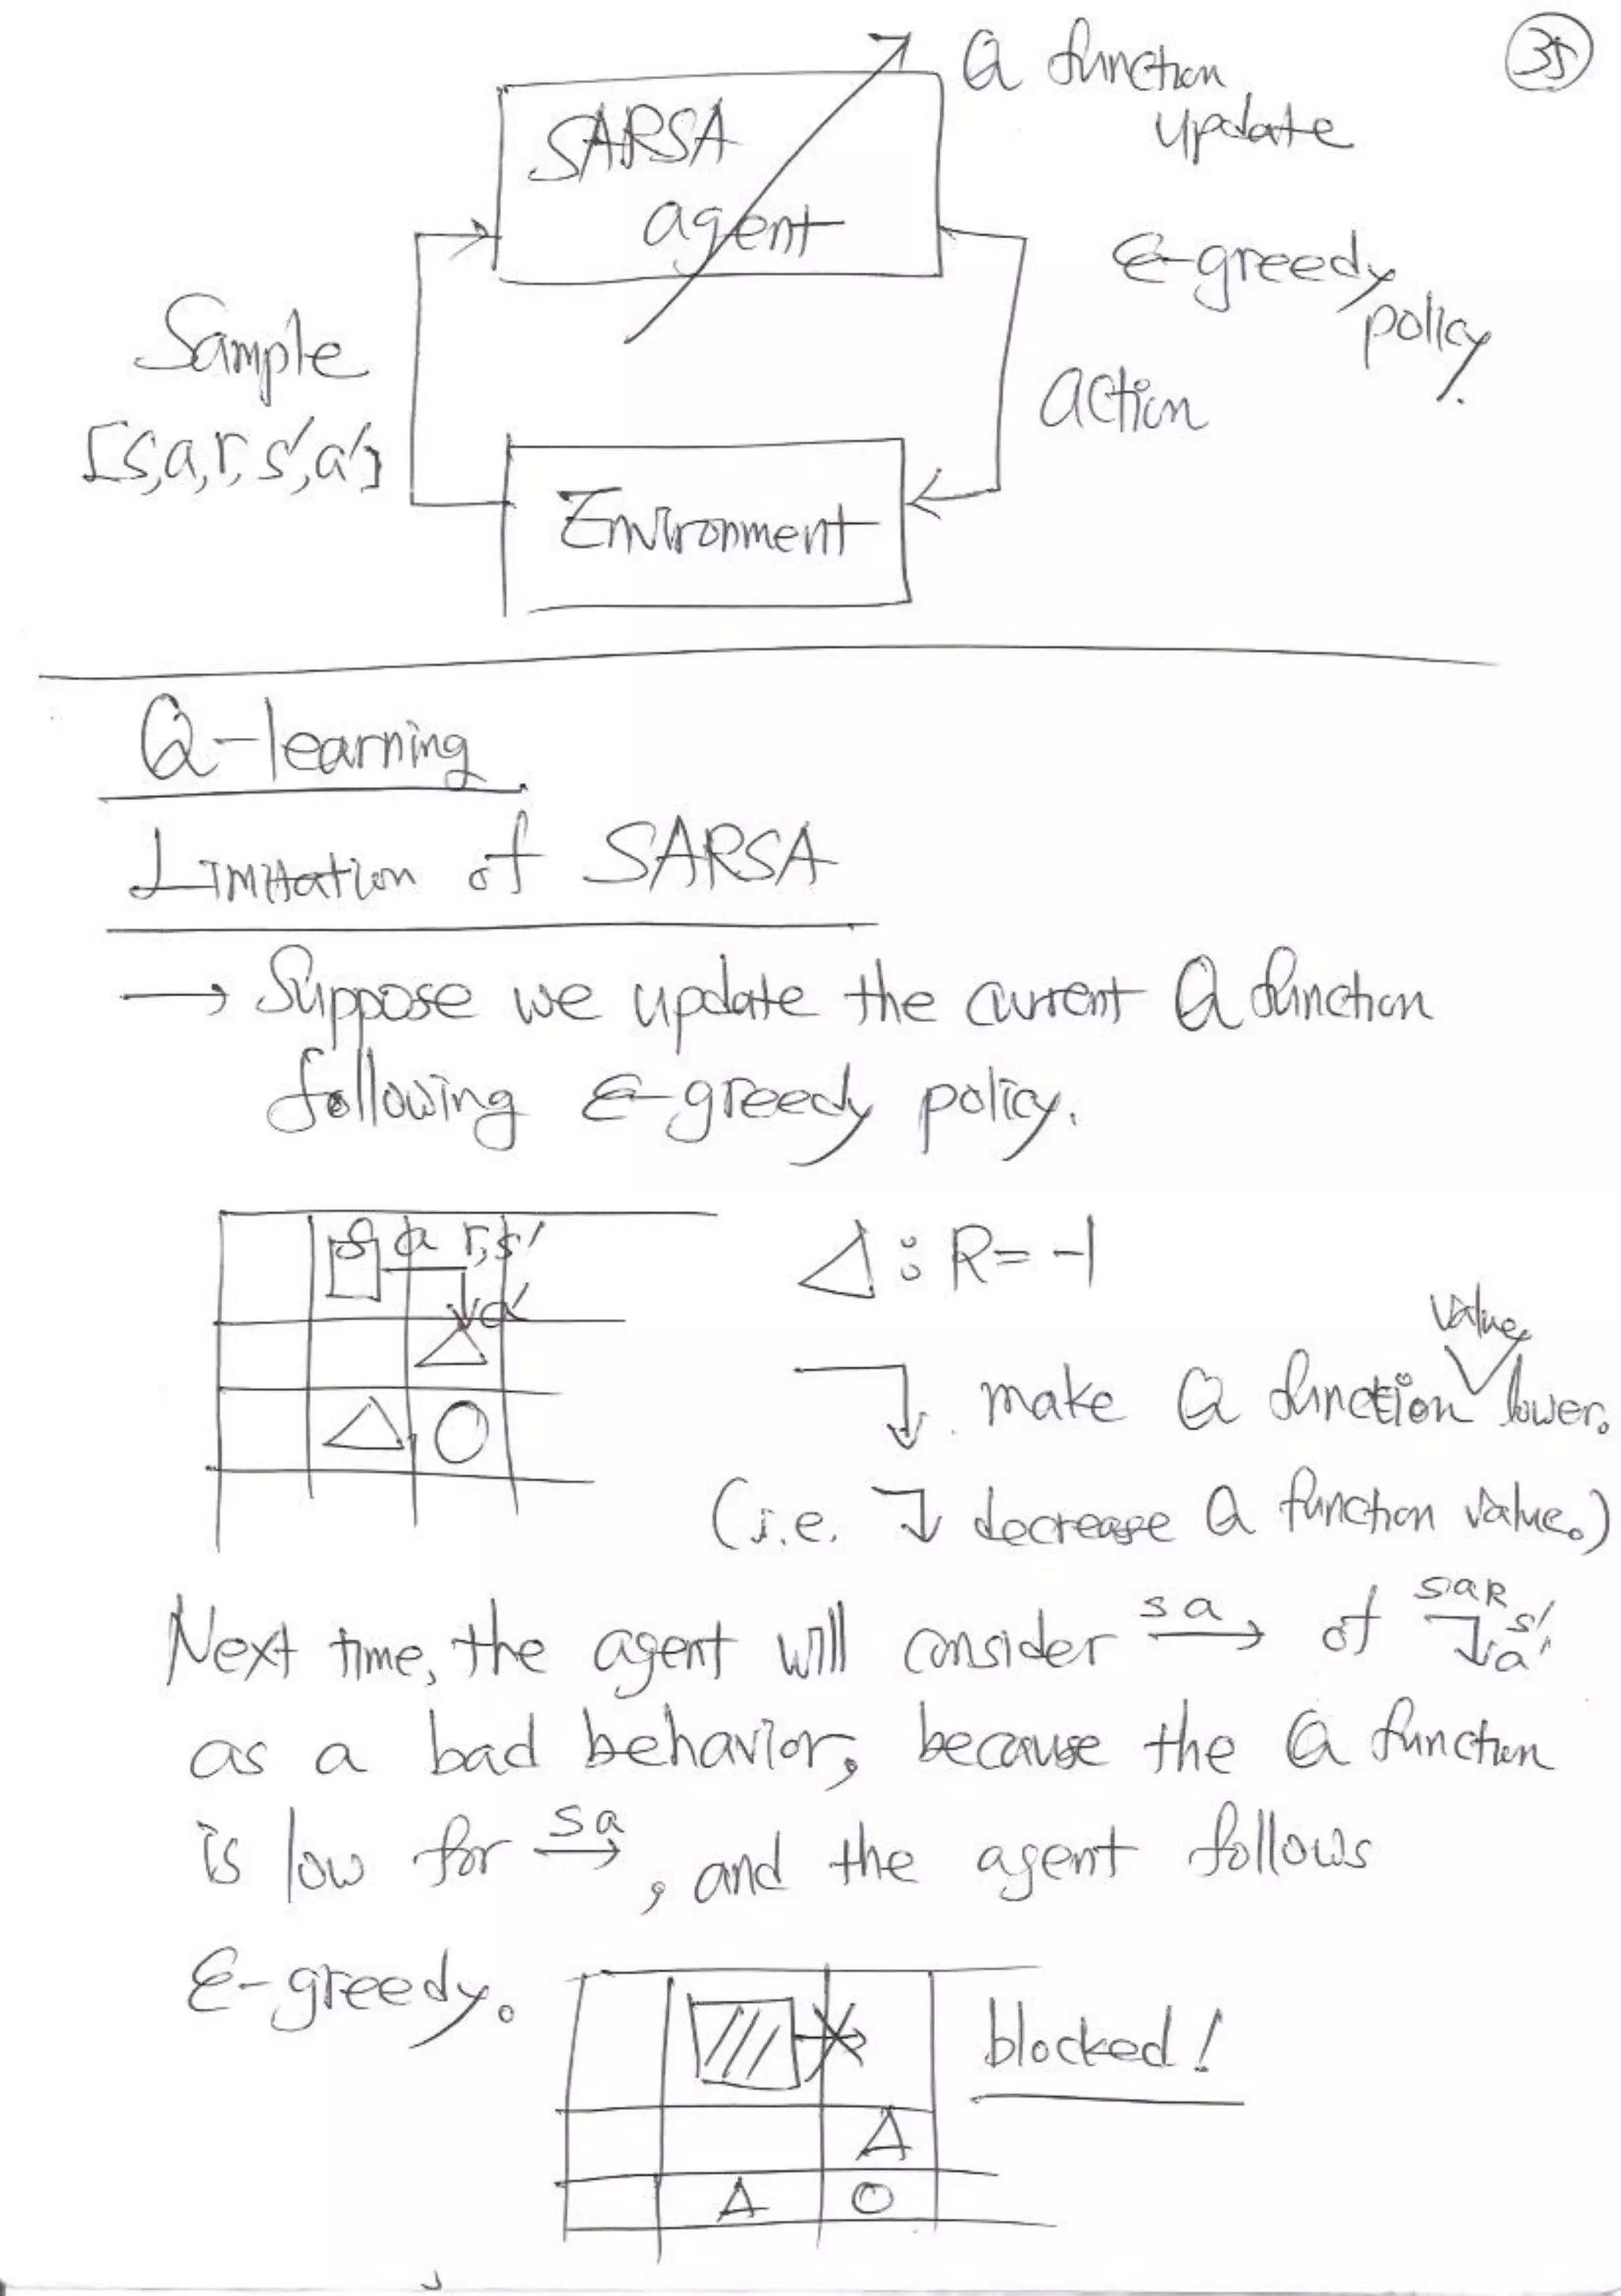 35
Q function
update
SARSA
agent
ε-greedy
policy.
Sample
[s,a,r,s',a']
action
Environment
Q-learning
Limitation of SARSA
→ Suppose we update the current Q function
following ε-greedy policy.
s a r,s'
a'
△: R = -1
value
make Q function lower.
(i.e. decrease Q function value.)
Next time, the agent will consider s a → of s a R s' a'
as a bad behavior, because the Q function
is low for s a →, and the agent follows
ε-greedy.
blocked!